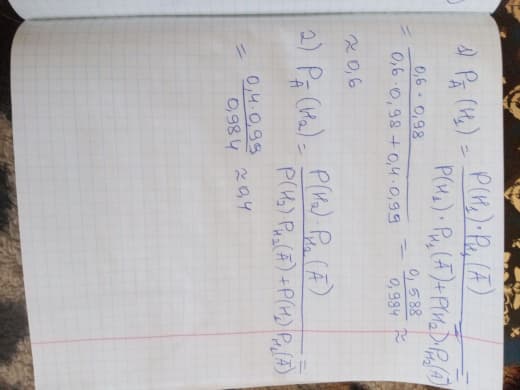 1) P_Ā(H₁) = P(H₁)·P_H₁(Ā) / P(H₁)·P_H₁(Ā)+P(H₂)·P_H₂(Ā) =
= 0,6·0,98 / 0,6·0,98+0,4·0,99 = 0,588 / 0,984 ≈
≈ 0,6
2) P_Ā(H₂) = P(H₂)·P_H₂(Ā) / P(H₂)P_H₂(Ā)+P(H₁)P_H₁(Ā) =
= 0,4·0,99 / 0,984 ≈ 0,4